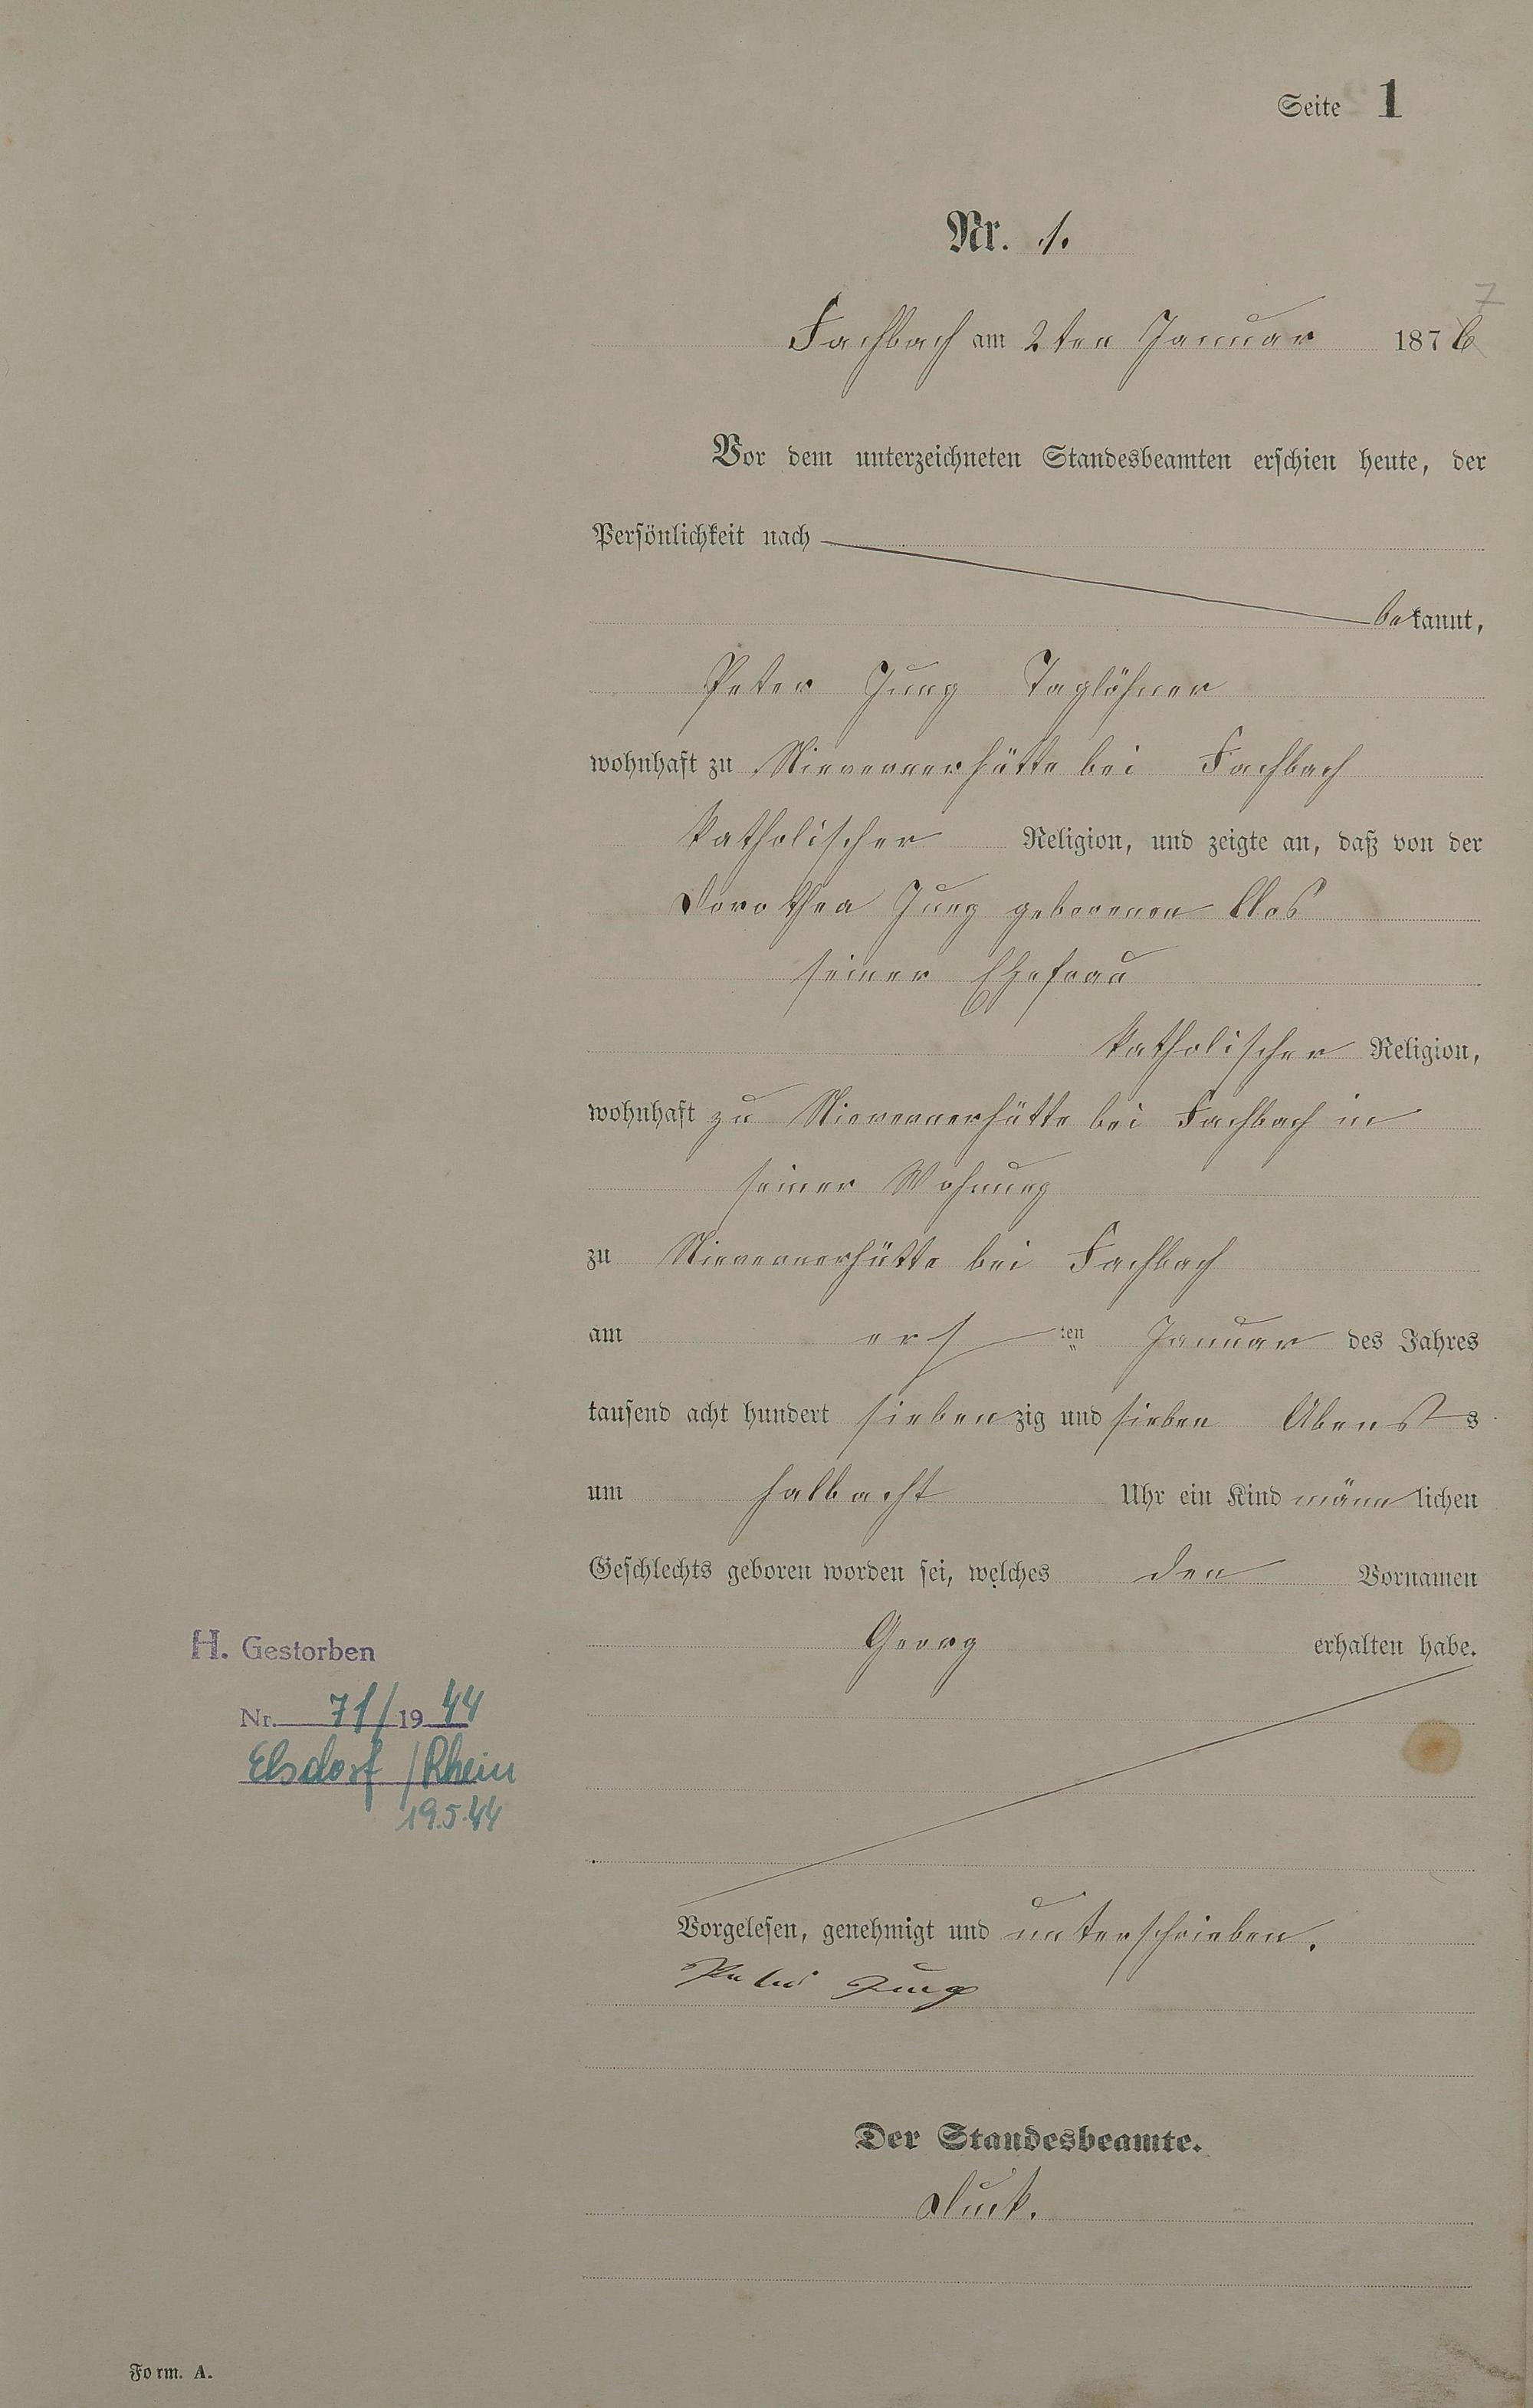 Seite 1
Nr. 1.
7
Fachbach am 2ten Januar 1876
Vor dem unterzeichneten Standesbeamten erschien heute, der
Persönlichkeit nach
bekannt,
Peter Jung Taglöhner
wohnhaft zu Nievernerhütte bei Fachbach
katholischer Religion, und zeigte an, daß von der
Dorothea Jung geborenen Clos
seiner Ehefrau
katholischer Religion,
wohnhaft zu Nievernerhütte bei Fachbach in
seiner Wohnung
zu Nievernerhütte bei Fachbach
am ersten Januar des Jahres
tausend acht hundert siebenzig und sieben Abends
um halbacht Uhr ein Kind männlichen
Geschlechts geboren worden sei, welches den Vornamen
Georg erhalten habe.
H. Gestorben
Nr. 71/1944
Elsdorf/Rhein
19.5.44
Vorgelesen, genehmigt und unterschrieben.
Peter Jung
Der Standesbeamte.
Form. A.